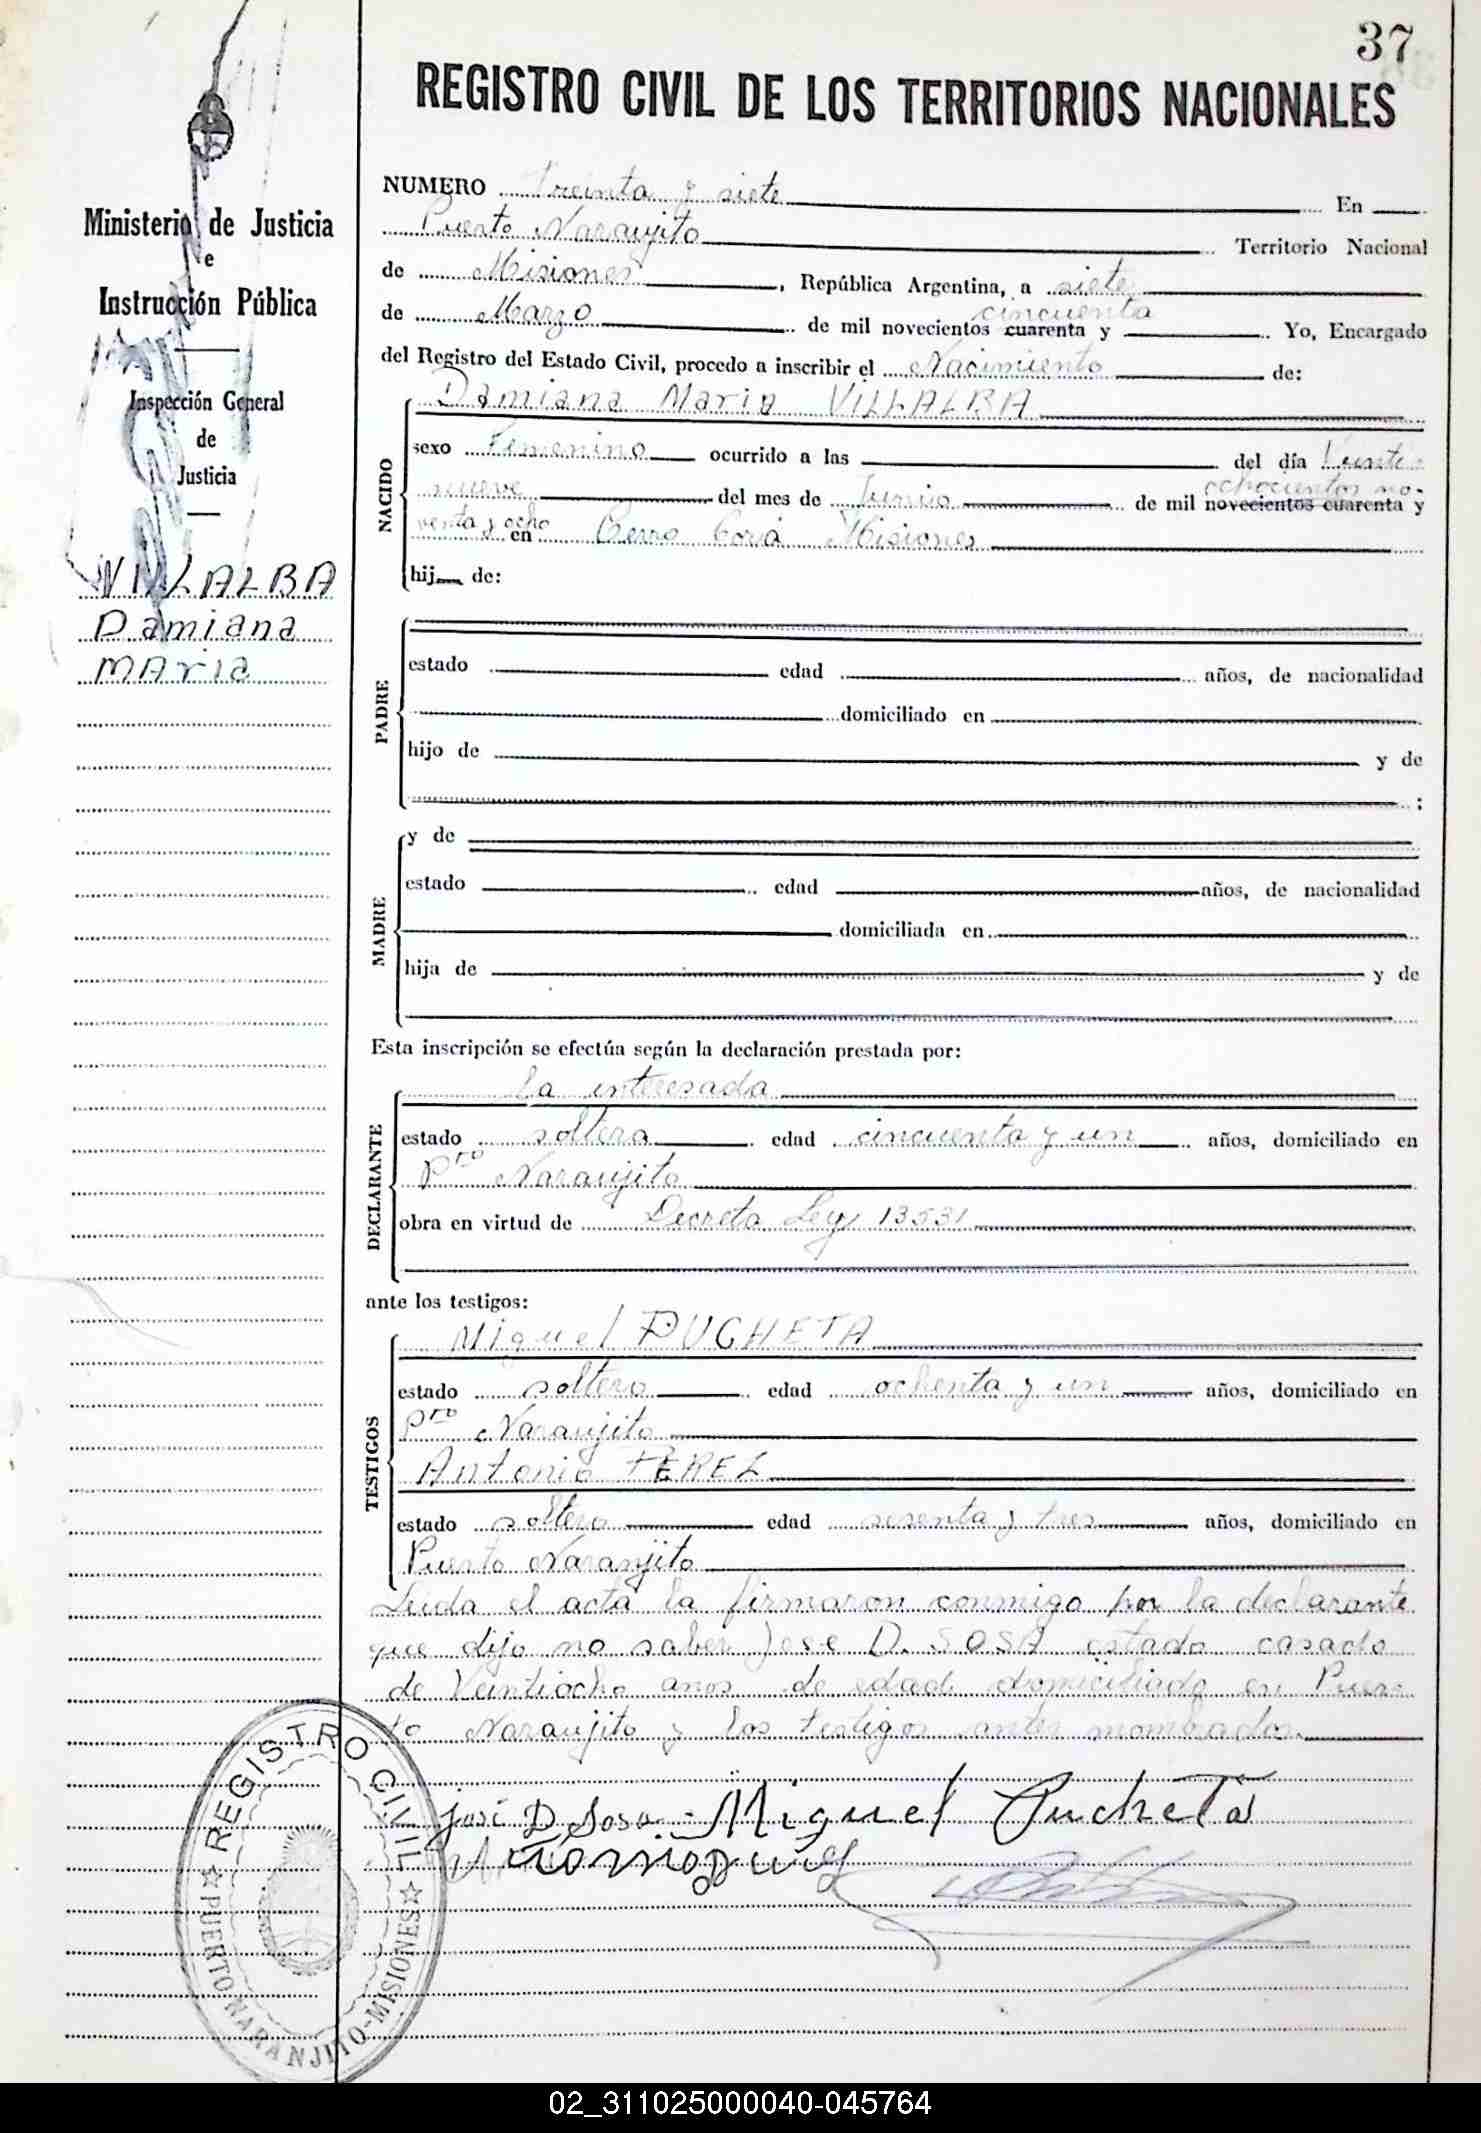 37
REGISTRO CIVIL DE LOS TERRITORIOS NACIONALES
Ministerio de Justicia
e
Instrucción Pública
Inspección General
de
Justicia
VILLALBA
Damiana
Maria
NUMERO Treinta y siete En
Puerto Naranjito Territorio Nacional
de Misiones, República Argentina, a siete
de Marzo de mil novecientos cuarenta y cincuenta Yo, Encargado
del Registro del Estado Civil, procedo a inscribir el Nacimiento de:
NACIDO
Damiana Maria VILLALBA
sexo Femenino ocurrido a las del día Veinte
nueve del mes de Junio de mil novecientos cuarenta y ochocientos no-
venta y ocho en Cerro Corá Misiones
hij de:
PADRE
estado edad años, de nacionalidad
domiciliado en
hijo de y de
:
MADRE
y de
estado edad años, de nacionalidad
domiciliada en
hija de y de
Esta inscripción se efectúa según la declaración prestada por:
DECLARANTE
la interesada
estado soltera edad cincuenta y un años, domiciliado en
Pto Naranjito
obra en virtud de Decreto Ley 13531
ante los testigos:
TESTIGOS
Miguel PUCHETA
estado soltero edad ochenta y un años, domiciliado en
Pto Naranjito
Antonio PEREZ
estado soltero edad sesenta y tres años, domiciliado en
Puerto Naranjito
Leida el acta la firmaron conmigo por la declarante
que dijo no saber Jose D. SOSA estado casado
de Veintiocho anos de edad domiciliado en Puer
to Naranjito y los testigos antes nombrados.
José D Sosa Miguel Pucheta
REGISTRO CIVIL
PUERTO NARANJITO-MISIONES
02_311025000040-045764